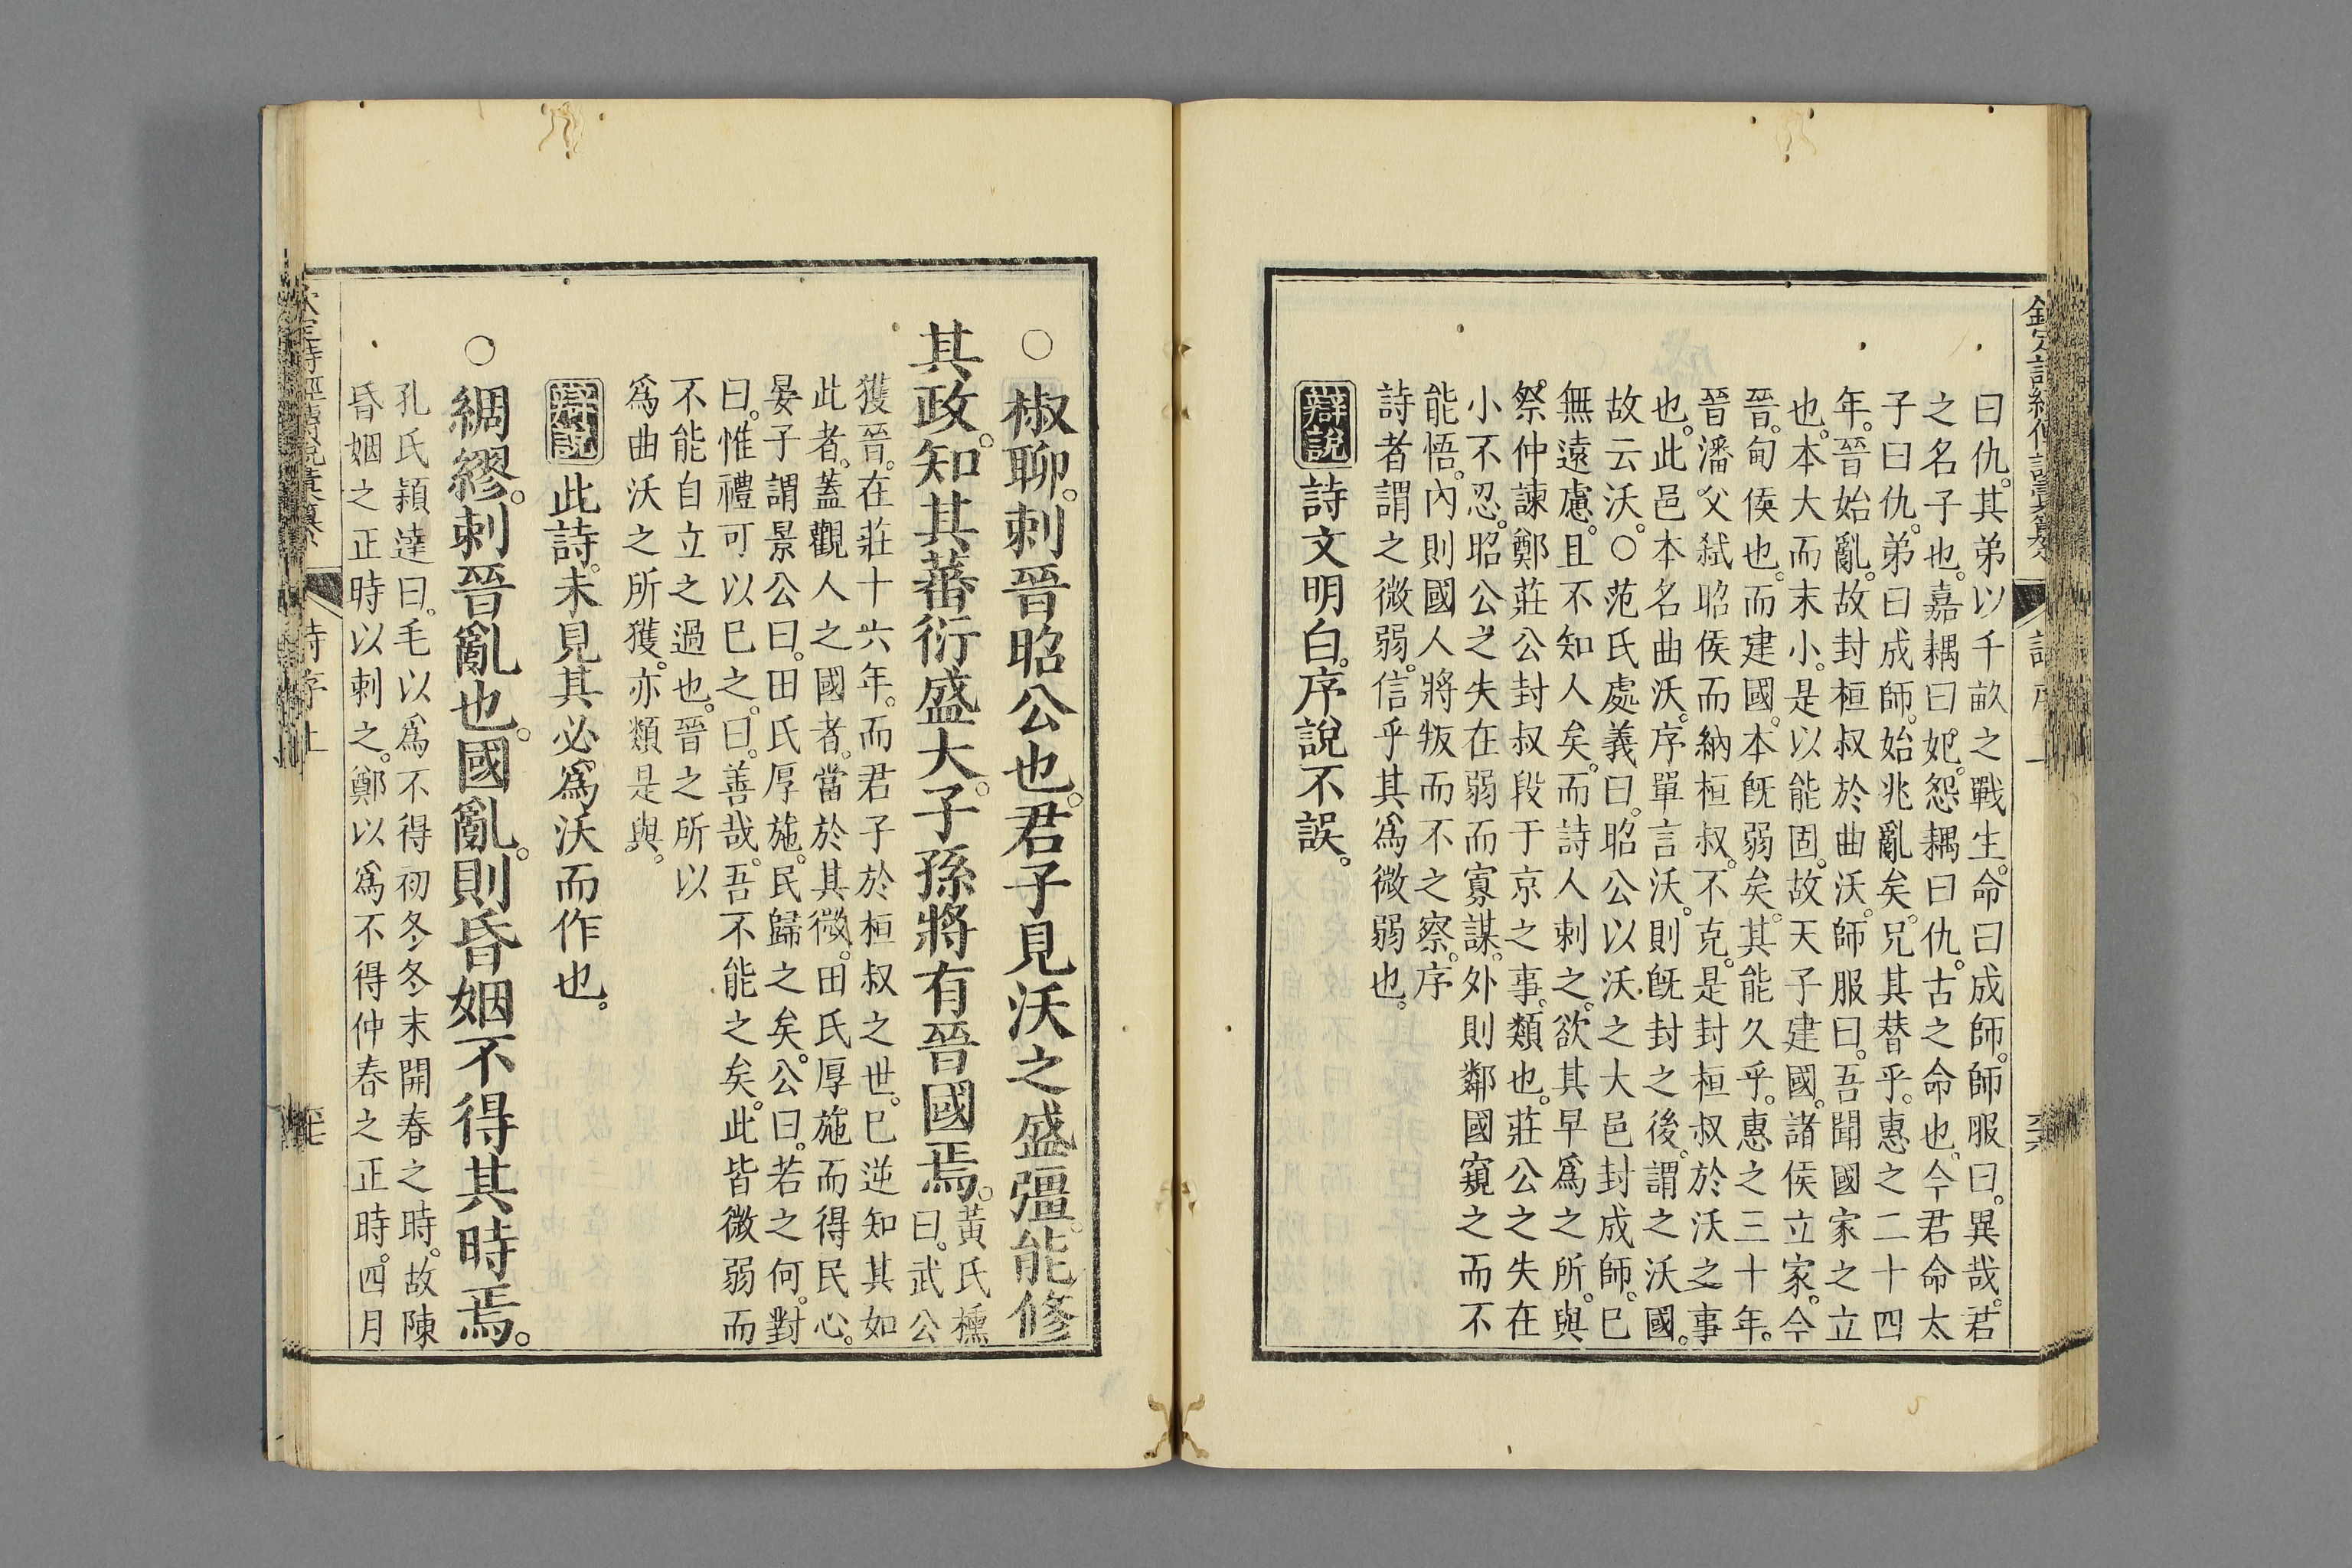 曰仇。其弟以千畝之戰生。命曰成師。師服曰。異哉。君
之名子也。嘉耦曰妃。怨耦曰仇。古之命也。今君命太
子曰仇。弟曰成師。始兆亂矣。兄其替乎。惠之二十四
年。晉始亂。故封桓叔於曲沃。師服曰。吾聞國家之立
也。本大而末小。是以能固。故天子建國。諸侯立家。今
晉。甸侯也。而建國。本旣弱矣。其能久乎。惠之三十年。
晉潘父弒昭侯而納桓叔。不克。是封桓叔於沃之事
也。此邑本名曲沃。序單言沃。則旣封之後。謂之沃國。
故云沃。○范氏處義曰。昭公以沃之大邑封成師。已
無遠慮。且不知人矣。而詩人刺之。欲其早爲之所。與
祭仲諫鄭莊公封叔段于京之事。類也。莊公之失在
小不忍。昭公之失在弱而寡謀。外則鄰國窺之而不
能悟。內則國人將叛而不之察。序
詩者謂之微弱。信乎其爲微弱也。
辯說 詩文明白。序說不誤。
○椒聊。刺晉昭公也。君子見沃之盛彊。能修
其政。知其蕃衍盛大。子孫將有晉國焉。黃氏櫄
曰。武公
獲晉。在莊十六年。而君子於桓叔之世。已逆知其如
此者。蓋觀人之國者。當於其微。田氏厚施而得民心。
晏子謂景公曰。田氏厚施。民歸之矣。公曰。若之何。對
曰。惟禮可以已之。曰。善哉。吾不能之矣。此皆微弱而
不能自立之過也。晉之所以
爲曲沃之所獲。亦類是與。
辯說 此詩。未見其必爲沃而作也。
○綢繆。刺晉亂也。國亂。則昏姻不得其時焉。
孔氏穎達曰。毛以爲不得初冬冬末開春之時。故陳
昏姻之正時以刺之。鄭以爲不得仲春之正時。四月
詩序上